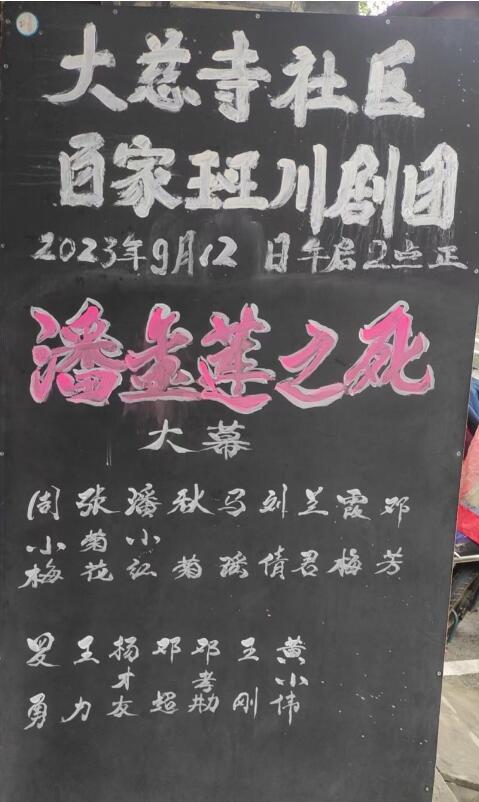 大慈寺社区
百家班川剧团
2023年9月12日午后2点正
潘金莲之死
大幕
周小梅 张菊花 潘小红 秋菊 马瑶 刘倩 兰君 霞梅 邓芳
罗勇 王力 杨才友 邓超 邓孝 王刚 黄小伟